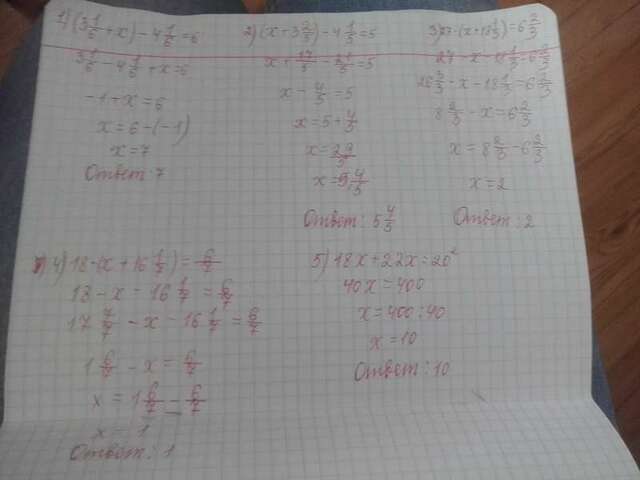 1) (3 1/6 + x) - 4 1/6 = 6
3 1/6 - 4 1/6 + x = 6
-1 + x = 6
x = 6 - (-1)
x = 7
Ответ 7
2) (x + 3 2/5) - 4 1/5 = 5
x + 17/5 - 21/5 = 5
x - 4/5 = 5
x = 5 + 4/5
x = 29/5
x = 5 4/5
Ответ: 5 4/5
3) 27 - (x + 18 1/3) = 6 2/3
27 - x - 18 1/3 = 6 2/3
26 3/3 - x - 18 1/3 = 6 2/3
8 2/3 - x = 6 2/3
x = 8 2/3 - 6 2/3
x = 2
Ответ: 2
4) 18 - (x + 16 1/7) = 6/7
18 - x - 16 1/7 = 6/7
17 7/7 - x - 16 1/7 = 6/7
1 6/7 - x = 6/7
x = 1 6/7 - 6/7
x = 1
Ответ: 1
5) 18x + 22x = 20²
40x = 400
x = 400 : 40
x = 10
Ответ: 10